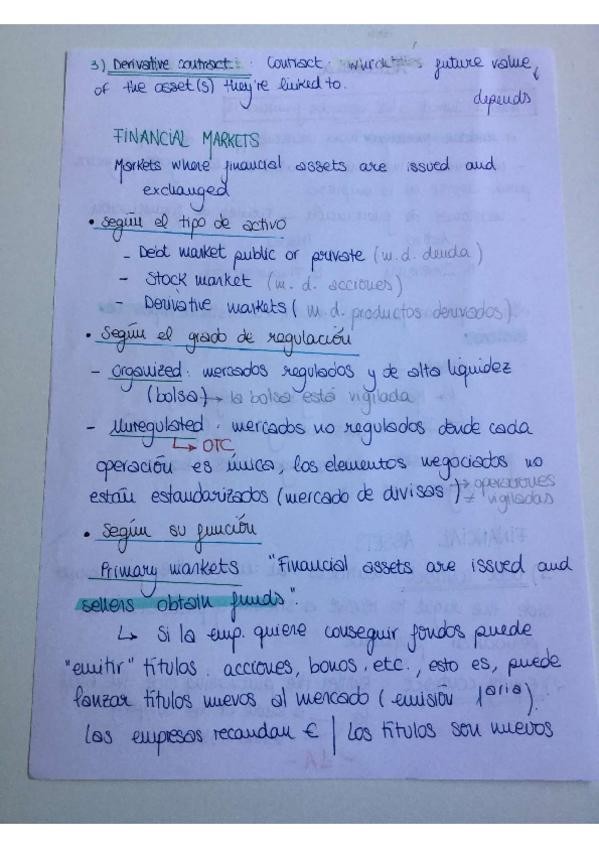 3) Derivative contract: Contract future value,
of the asset(s) they're linked to.
depends
FINANCIAL MARKETS
Markets where financial assets are issued and
exchanged
• Según el tipo de activo
- Debt market public or private (m.d. deuda)
- Stock market (m.d. acciones)
- Derivative markets (m.d. productos derivados).
• Según el grado de regulación
- Organized: mercados regulados y de alta liquidez
(bolsa) → la bolsa está vigilada
- Unregulated: mercados no regulados donde cada
↳ OTC
operación es única, los elementos negociados no
están estandarizados (mercado de divisas) → operaciones
≠ vigiladas
• Según su función
Primary markets "Financial assets are issued and
sellers obtain funds"
↳ Si la emp. quiere conseguir fondos puede
"emitir" títulos. acciones, bonos. etc., esto es, puede
lanzar títulos nuevos al mercado (emisión 1aria).
Las empresas recaudan € | Los títulos son nuevos